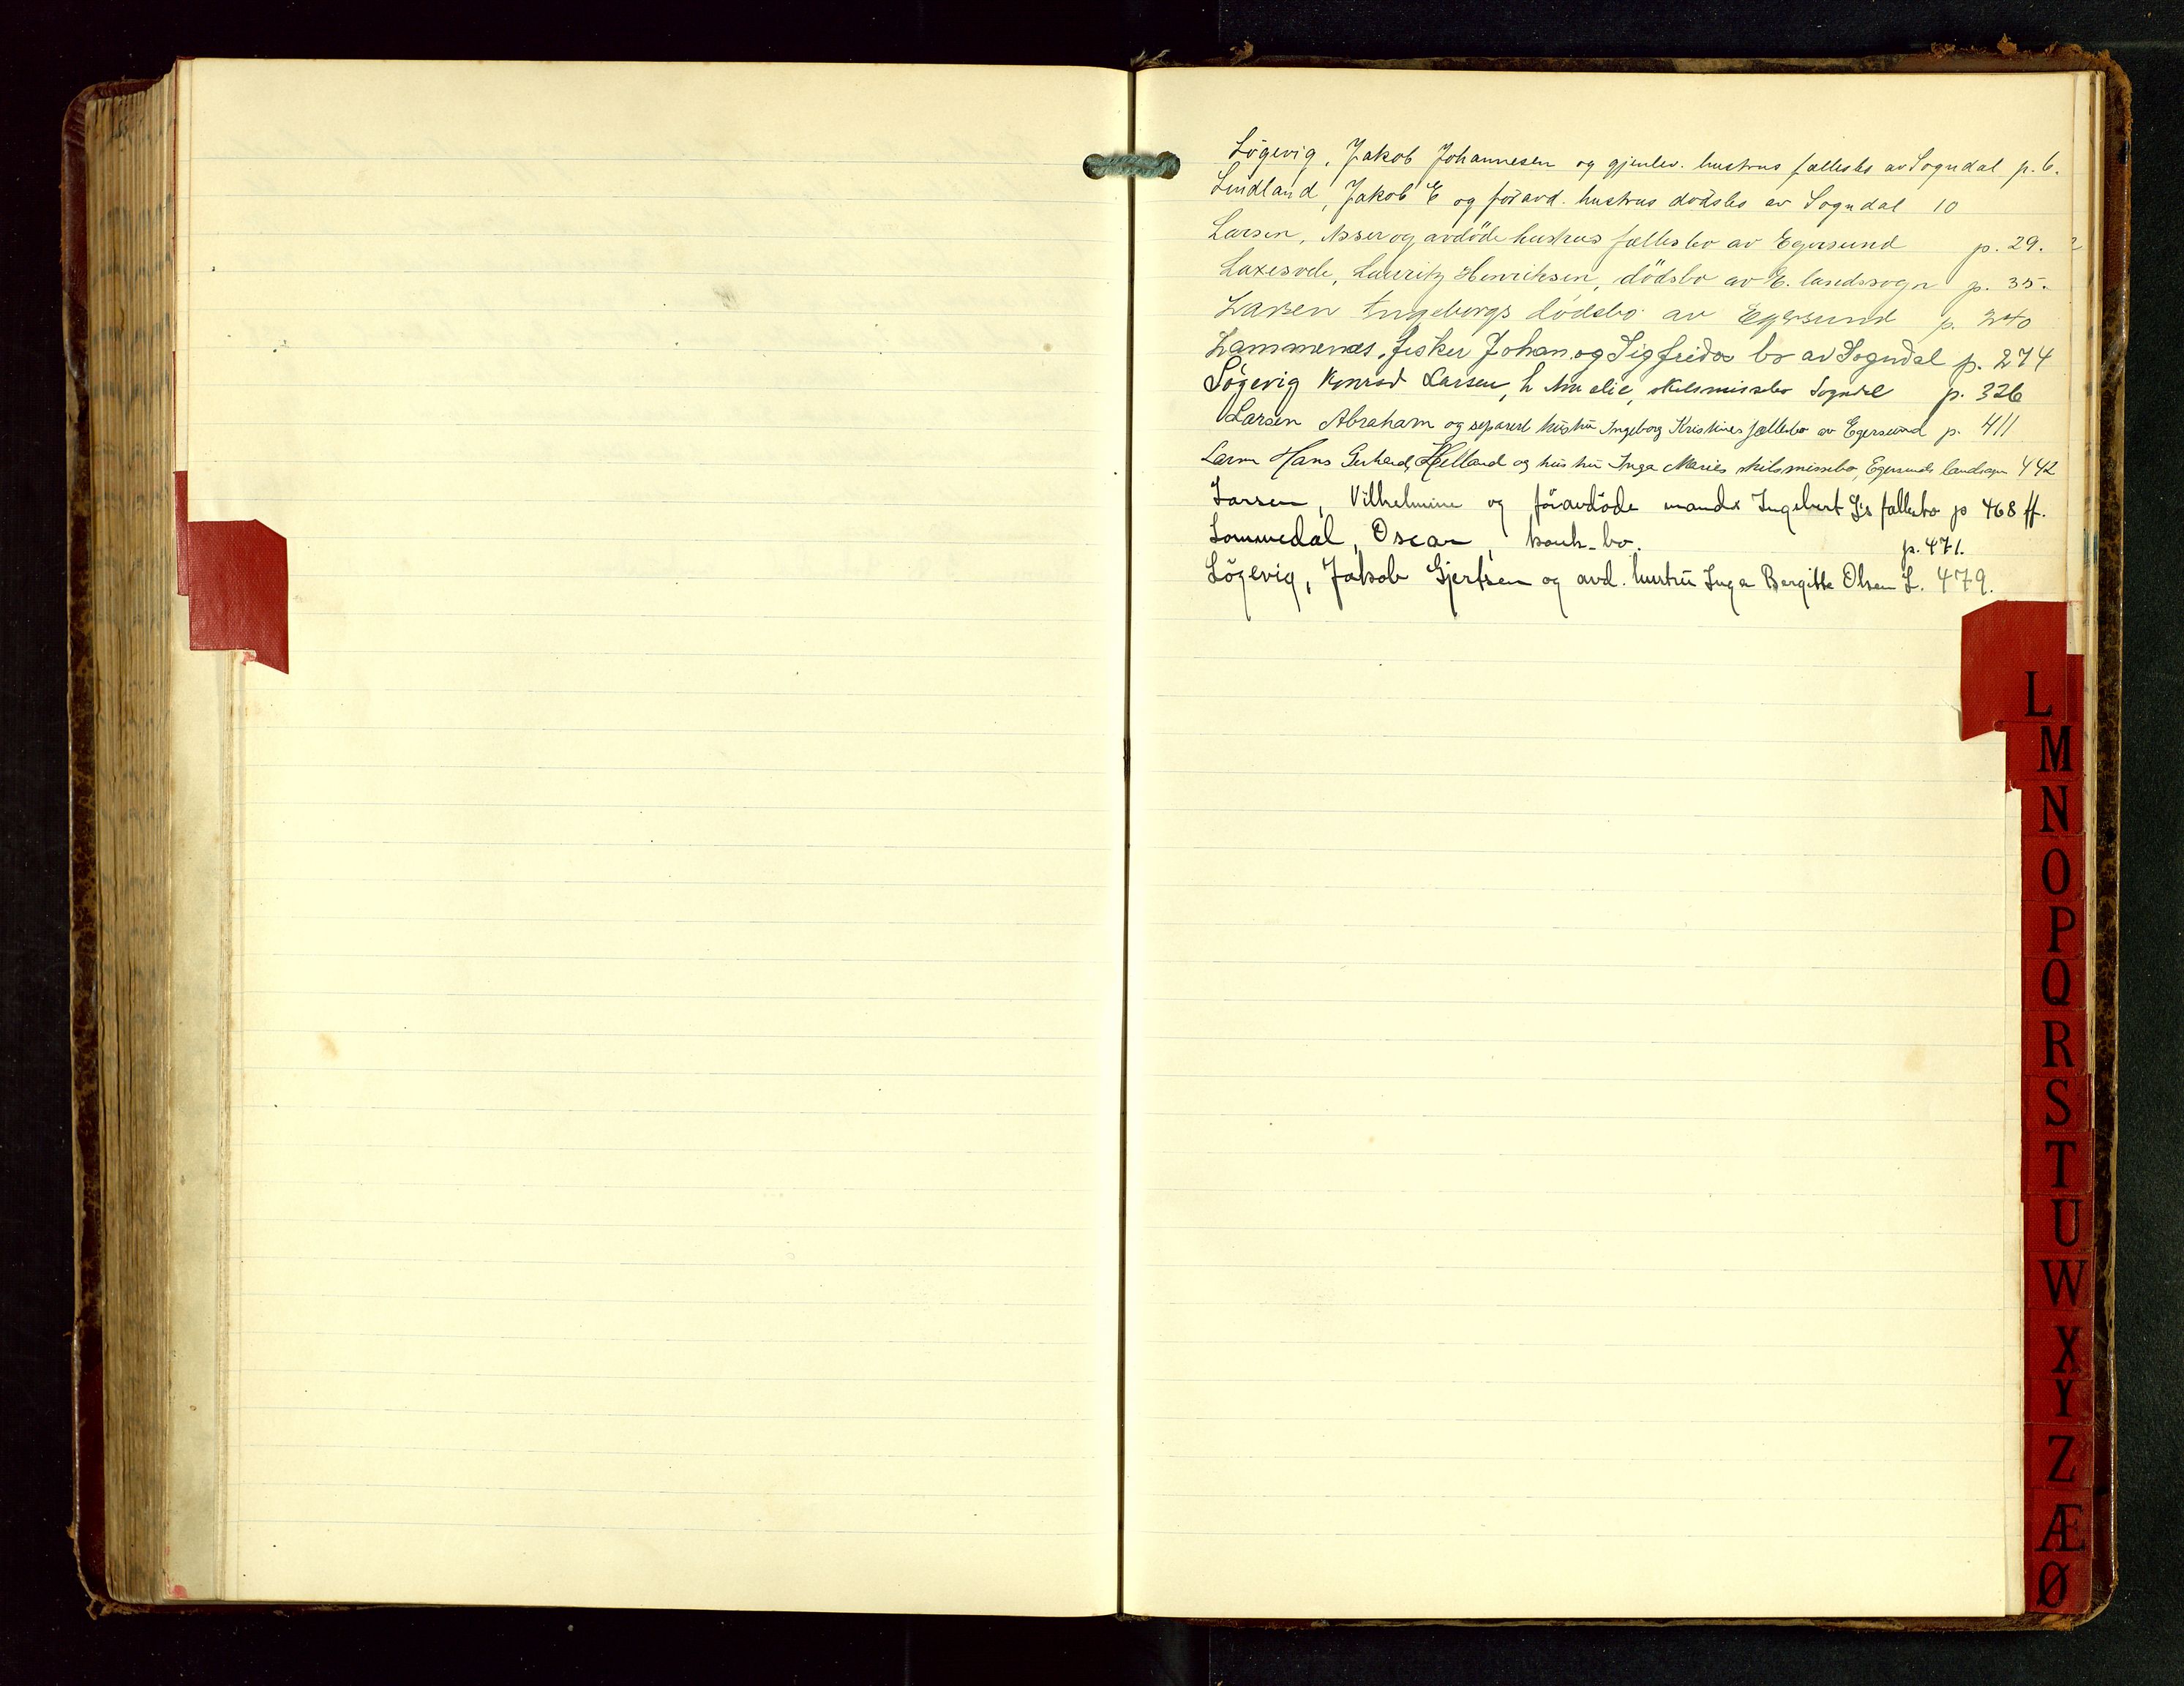 Lögevig, Jakob Johannesen og gjenlev. hustrus fællesbo av Sogndal p. 6.
Lindland, Jakob E og föravd. hustrus dödsbo av Sogndal 10
Larsen, Asser og avdöde hustrus fællesbo av Egersund p. 29.
Laxesvele, Lauritz Henriksen, dödsbo av E. landssogn p. 35.
Larsen Ingeborgs dödsbo av Egersund p. 240
Lammenæs, fisker Johan og Sigfridas bo av Sogndal p. 274
Lögevig Konrad Larsen, & Amalie, skilsmissebo Sogndal p. 326
Larsen Abraham og separert hustru Ingeborg Kristines fællesbo av Egersund p. 411
Larsen Hans Gerhard, Helland og hustru Inga Maries skilsmissebo, Egersunds landsogn 442
Larsen, Vilhelmine og föravdöde mands Ingebert L's fællesbo p 468 ff.
Lommedal, Oscar, konk-bo. p. 471.
Lögevig, Jakob Gjertsen og avd. hustru Inga Bergitte Olsen L. 479.
L
M
N
O
P
Q
R
S
T
U
W
X
Y
Z
Æ
Ø